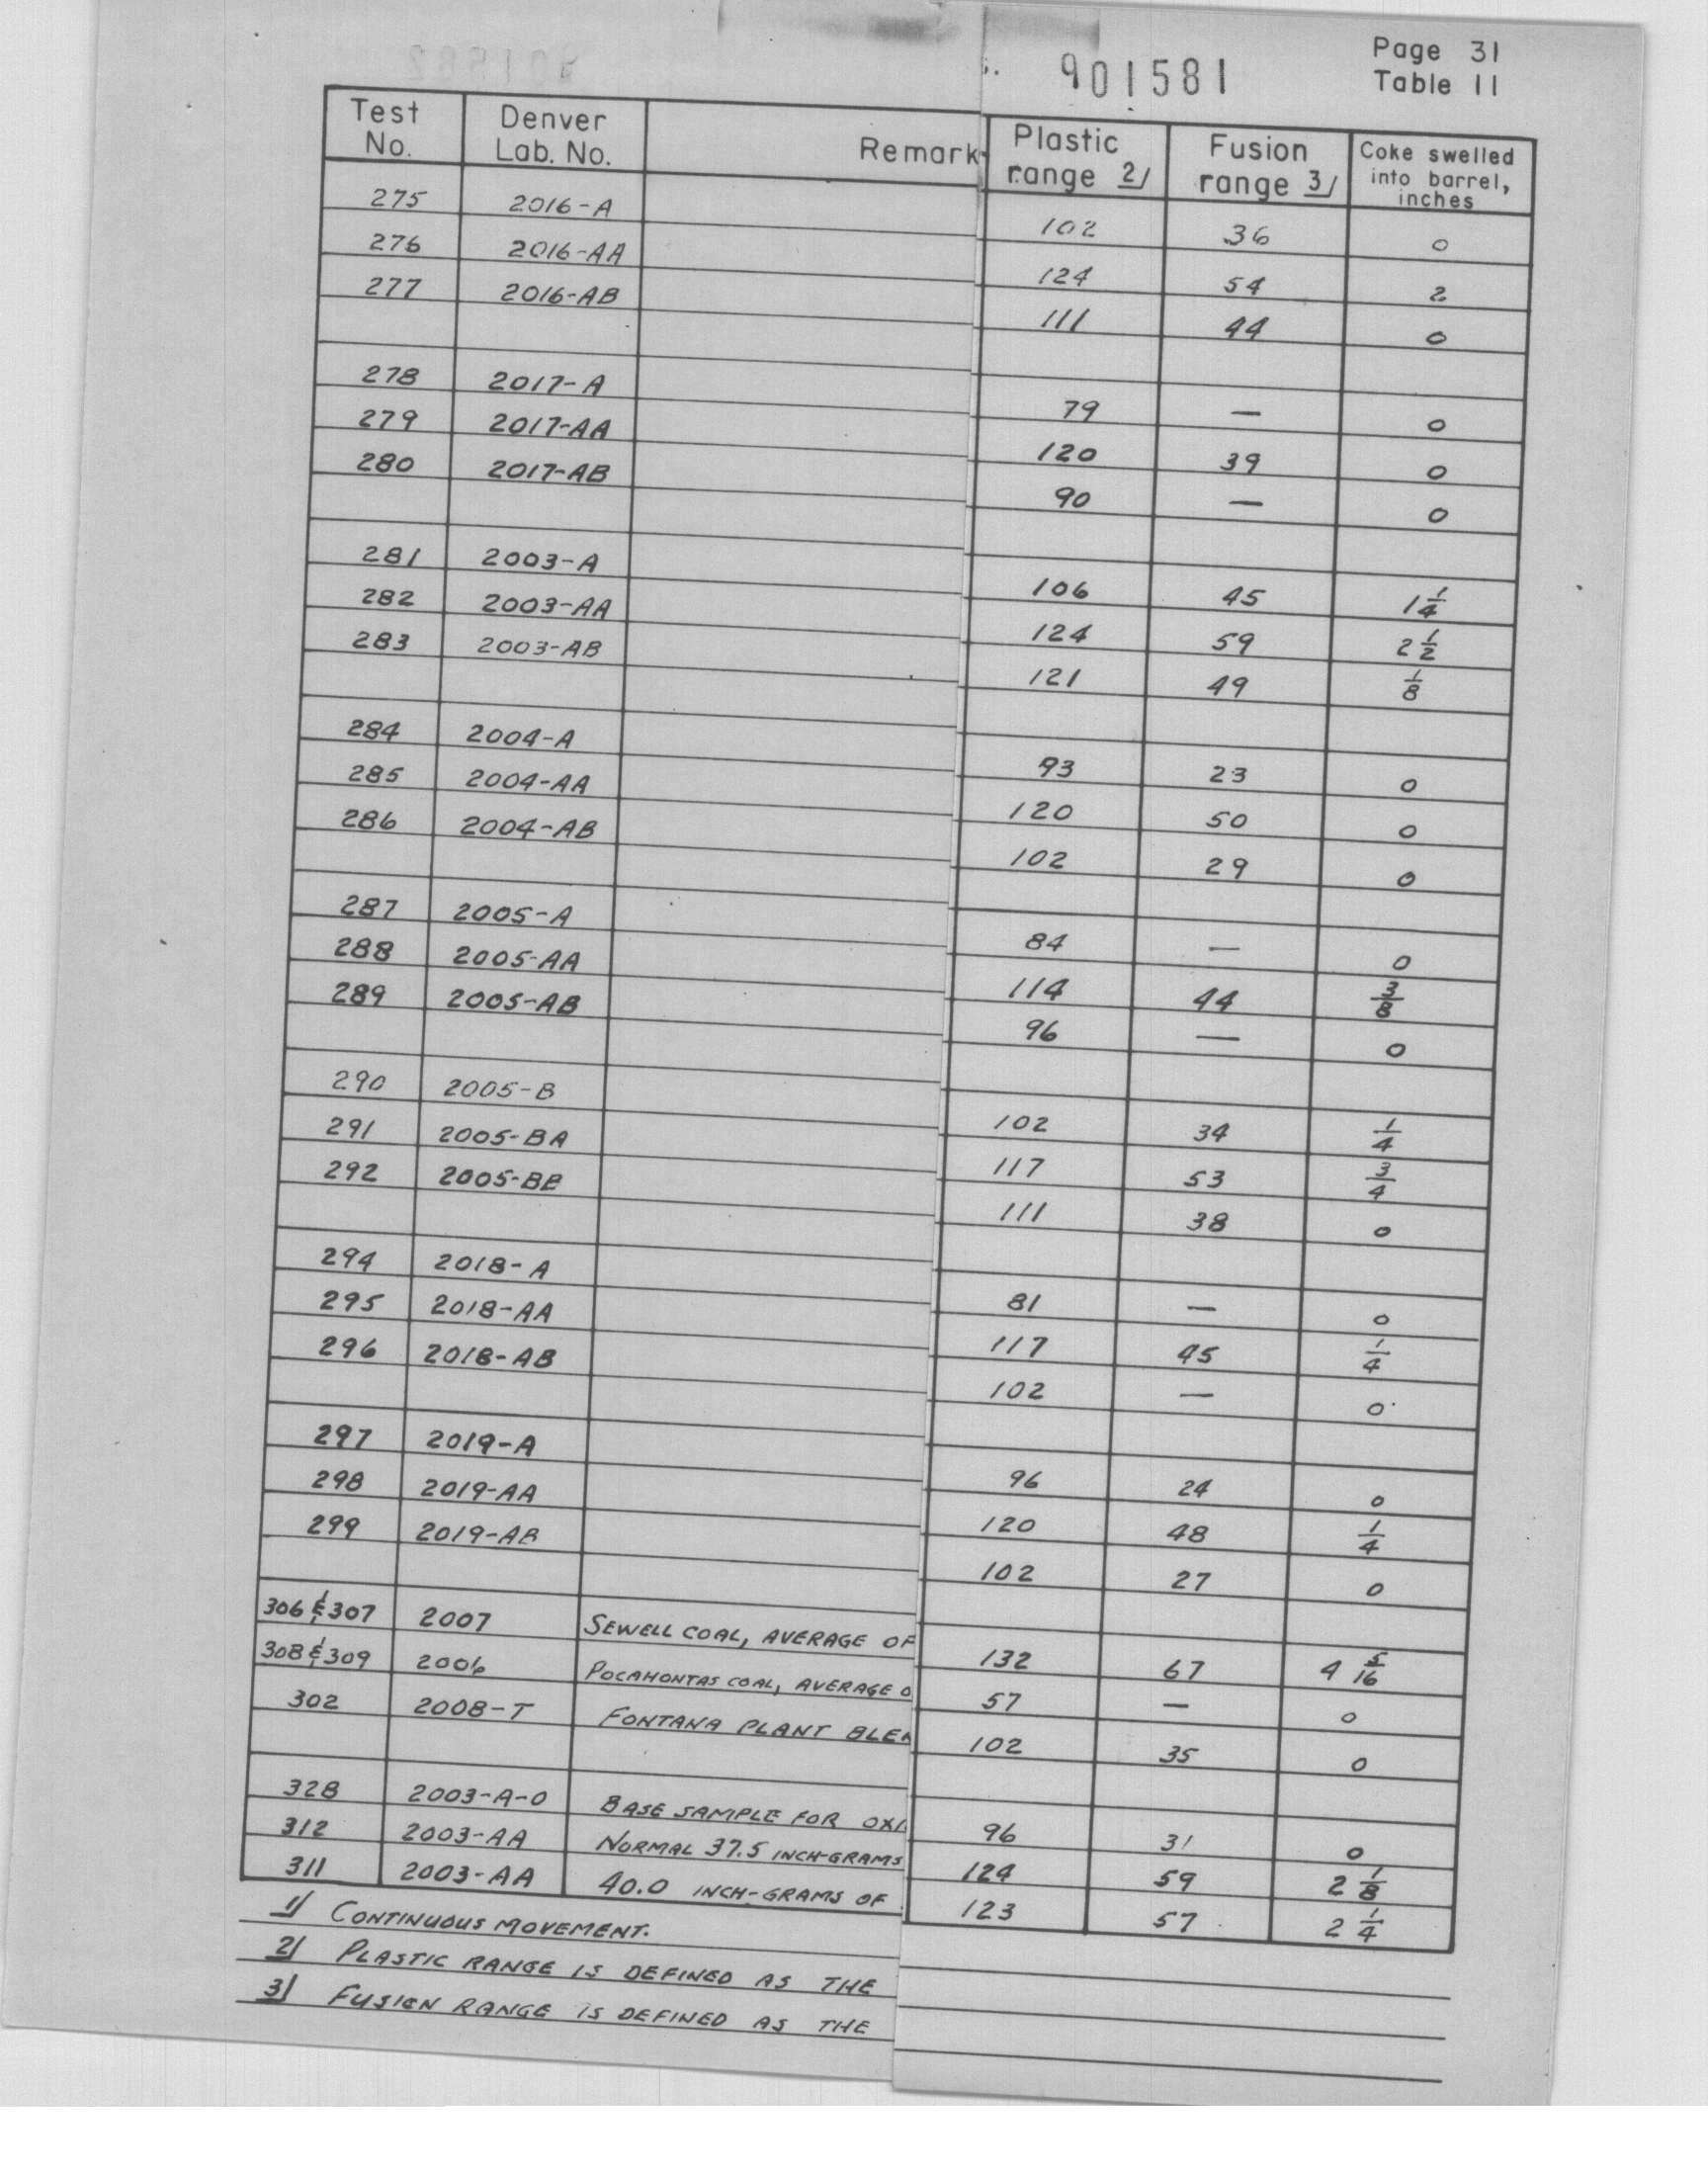 Page 31
901581
Table 11
Test No. Denver Lab. No. Remark Plastic range 2/ Fusion range 3/ Coke swelled into barrel, inches
275 2016-A 102 36 0
276 2016-AA 124 54 2
277 2016-AB 111 44 0
278 2017-A 79 — 0
279 2017-AA 120 39 0
280 2017-AB 90 — 0
281 2003-A 106 45 1 1/4
282 2003-AA 124 59 2 1/2
283 2003-AB 121 49 1/8
284 2004-A 93 23 0
285 2004-AA 120 50 0
286 2004-AB 102 29 0
287 2005-A 84 — 0
288 2005-AA 114 44 3/8
289 2005-AB 96 — 0
290 2005-B 102 34 1/4
291 2005-BA 117 53 3/4
292 2005-BB 111 38 0
294 2018-A 81 — 0
295 2018-AA 117 45 1/4
296 2018-AB 102 — 0
297 2019-A 96 24 0
298 2019-AA 120 48 1/4
299 2019-AB 102 27 0
306 & 307 2007 SEWELL COAL, AVERAGE OF 132 67 4 5/16
308 & 309 2006 POCAHONTAS COAL, AVERAGE O 57 — 0
302 2008-T FONTANA PLANT BLEN 102 35 0
328 2003-A-O BASE SAMPLE FOR OXI 96 31 0
312 2003-AA NORMAL 37.5 INCH-GRAMS 124 59 2 1/8
311 2003-AA 40.0 INCH-GRAMS OF 123 57 2 1/4
1/ CONTINUOUS MOVEMENT.
2/ PLASTIC RANGE IS DEFINED AS THE
3/ FUSION RANGE IS DEFINED AS THE